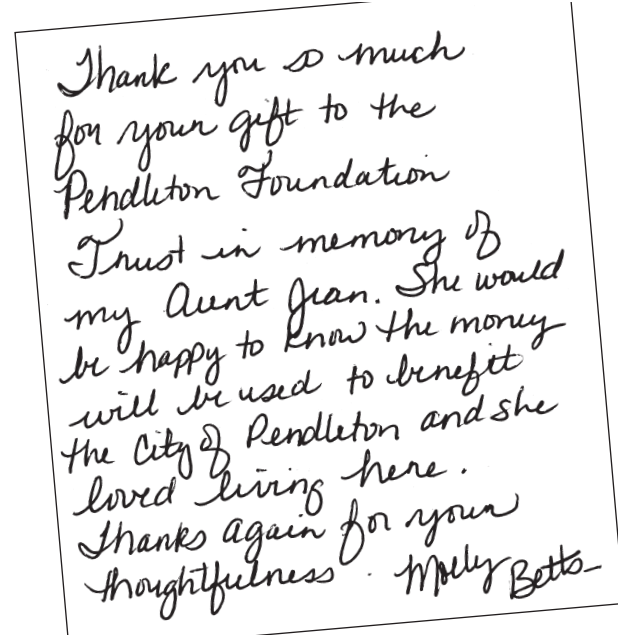 Thank you so much
for your gift to the
Pendleton Foundation
Trust in memory of
my Aunt Jean. She would
be happy to know the money
will be used to benefit
the City of Pendleton and she
loved living here.
Thanks again for your
thoughtfulness. Molly Betts